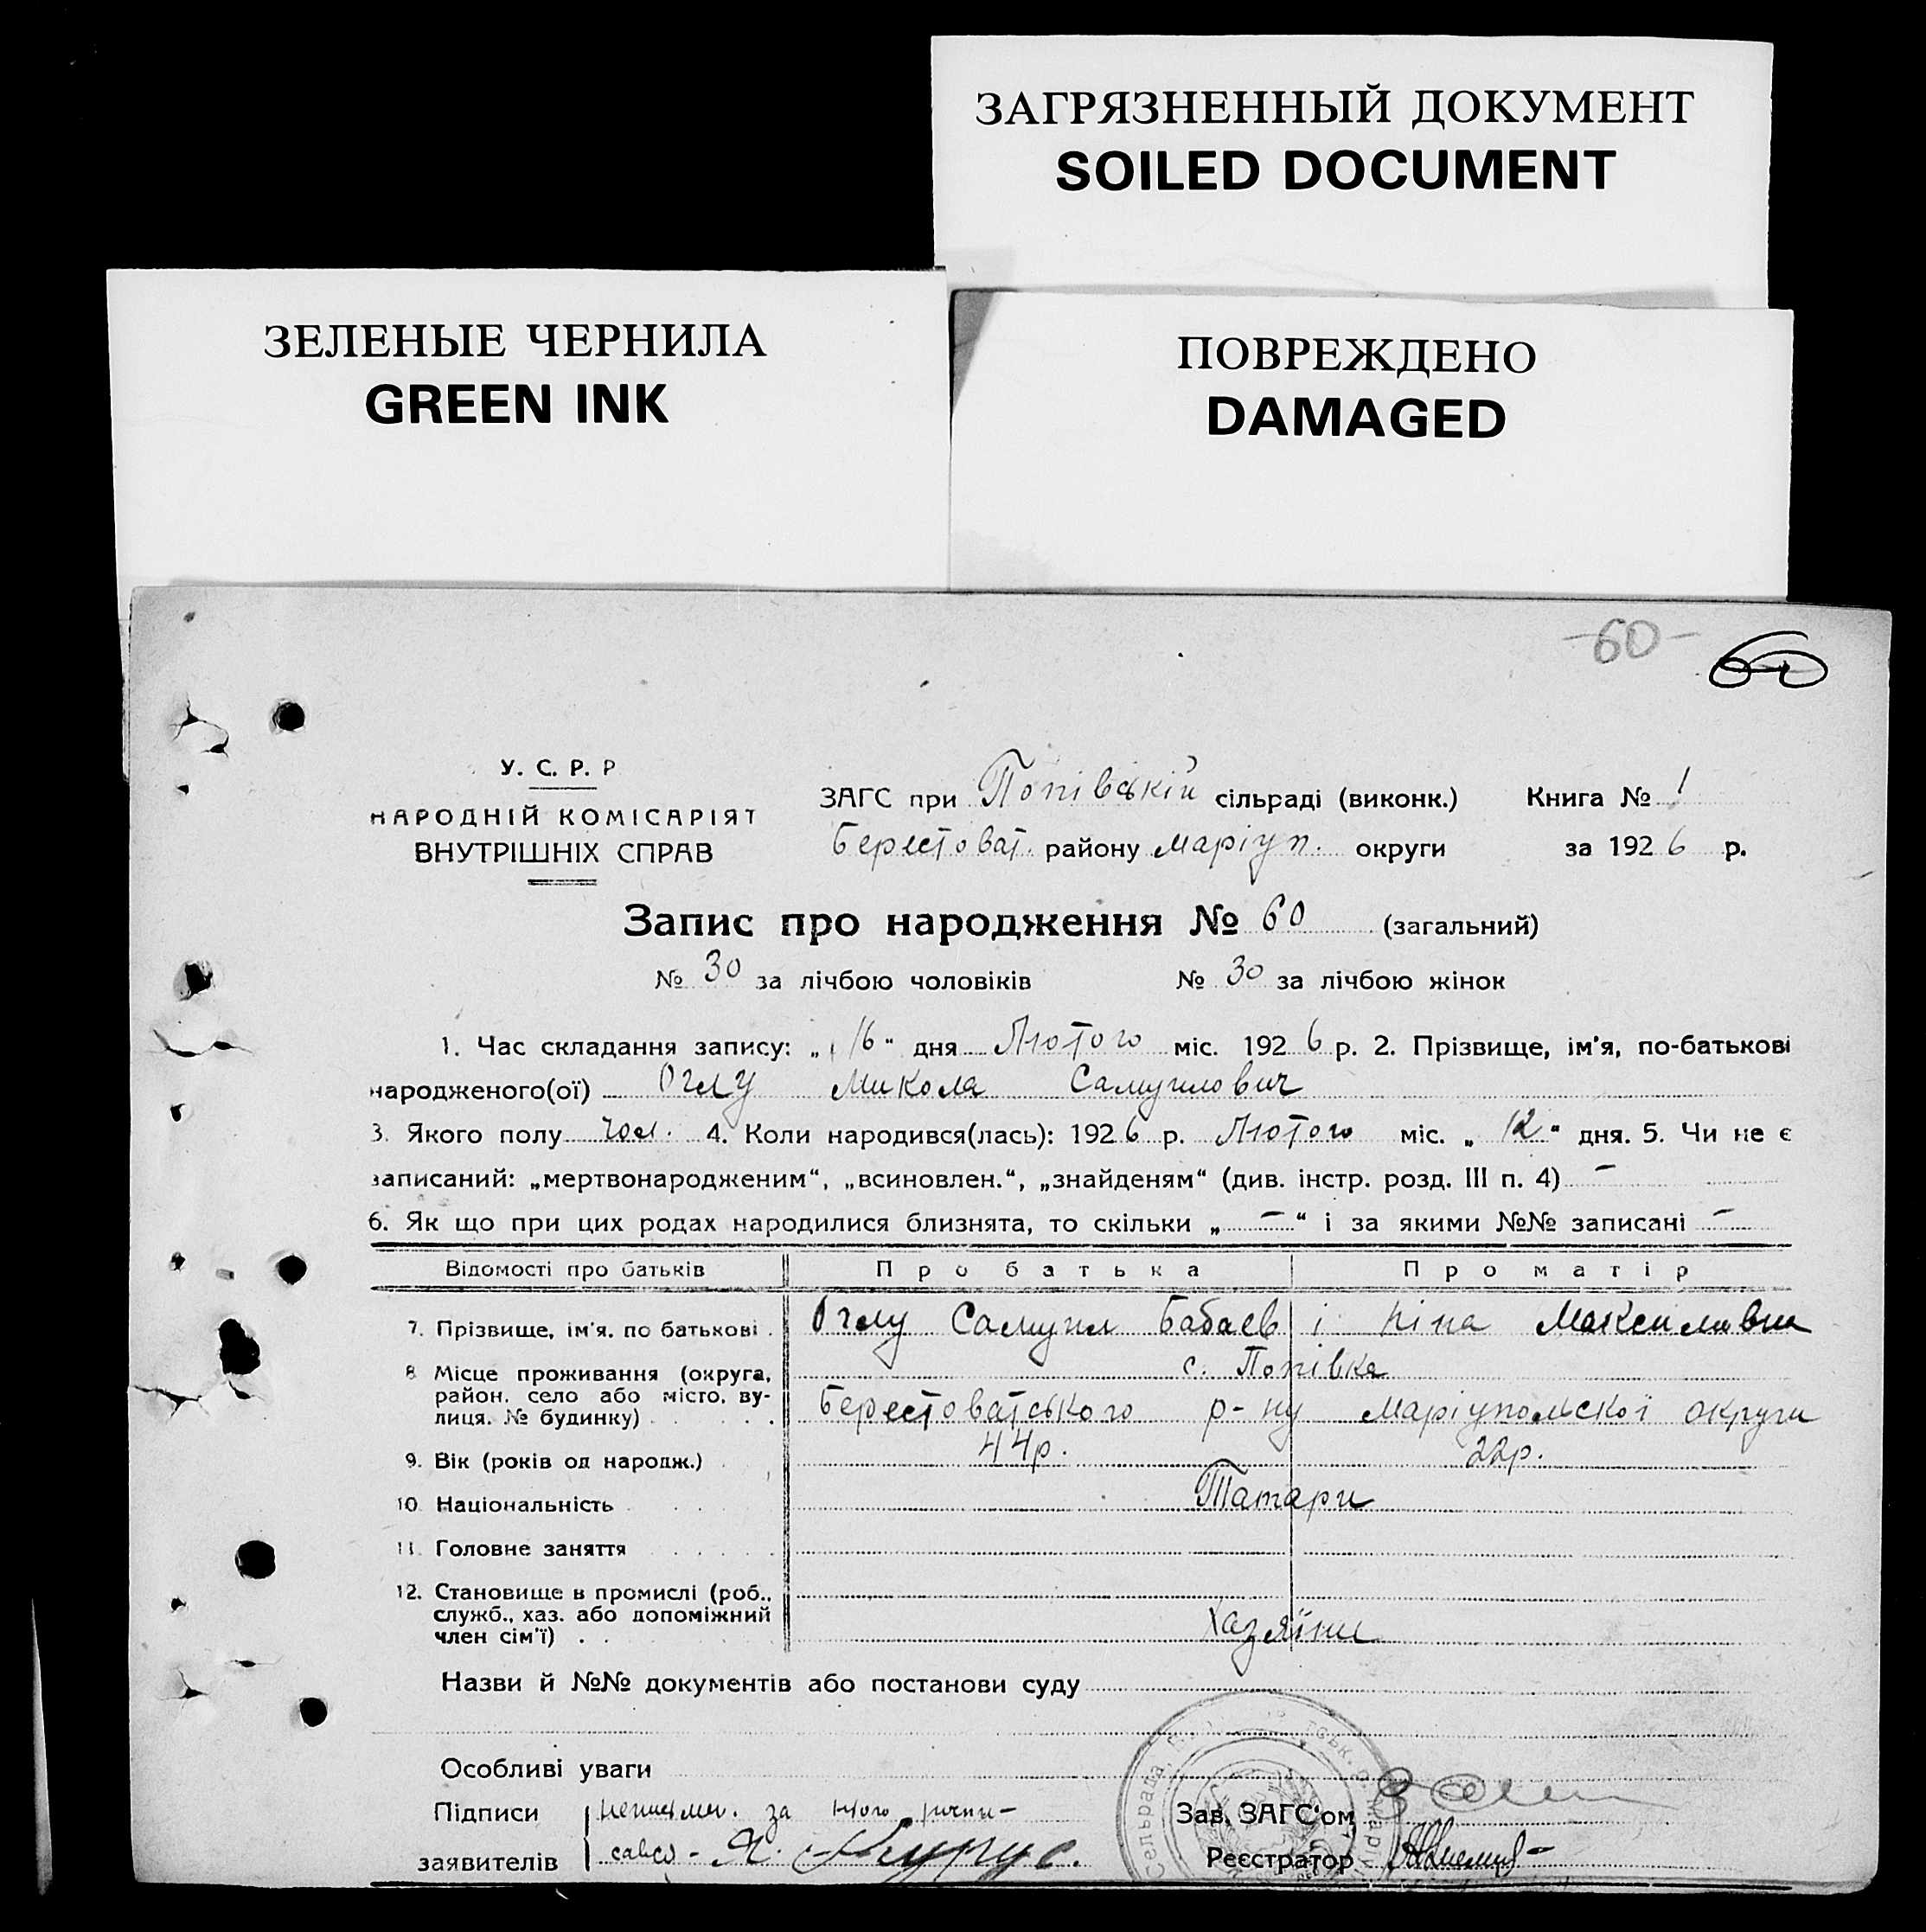 ЗАГРЯЗНЕННЫЙ ДОКУМЕНТ
SOILED DOCUMENT
ЗЕЛЕНЫЕ ЧЕРНИЛА
GREEN INK
ПОВРЕЖДЕНО
DAMAGED
-60- 60
У. С. Р. Р
НАРОДНІЙ КОМІСАРІЯТ
ВНУТРІШНІХ СПРАВ
ЗАГС при Попівській сільраді (виконк.) Книга № 1
Берестоват. району Маріуп. округи за 1926 р.
Запис про народження № 60 (загальний)
№ 30 за лічбою чоловіків № 30 за лічбою жінок
1. Час складання запису: „16“ дня Лютого міс. 1926 р. 2. Прізвище, ім'я, по-батькові
народженого(ої) Оглу Микола Самуилович
3. Якого полу чол. 4. Коли народився(лась): 1926 р. Лютого міс. „12“ дня. 5. Чи не є
записаний: „мертвонародженим“, „всиновлен.“, „знайденям“ (див. інстр. розд. III п. 4) –
6. Як що при цих родах народилися близнята, то скільки „–“ і за якими №№ записані –
Відомості про батьків Про батька Про матір
7. Прізвище, ім'я, по батькові . Оглу Самуил Бабаев і Ніна Максимовна
8 Місце проживання (округа, с. Попівка
район, село або місто, ву-
лиця, № будинку) Берестоватського р-ну Маріупольскоі округи
9. Вік (років од народж.) 44р. 22р.
10. Національність Татари
11. Головне заняття
12. Становище в промислі (роб.,
служб., хаз. або допоміжний
член сім'ї) . Хазяїни
Назви й №№ документів або постанови суду
Особливі уваги
Підписи неписьмен. за його роспи-
заявителів савсь - Я.
Зав. ЗАГС'ом
Реєстратор
Сельрада